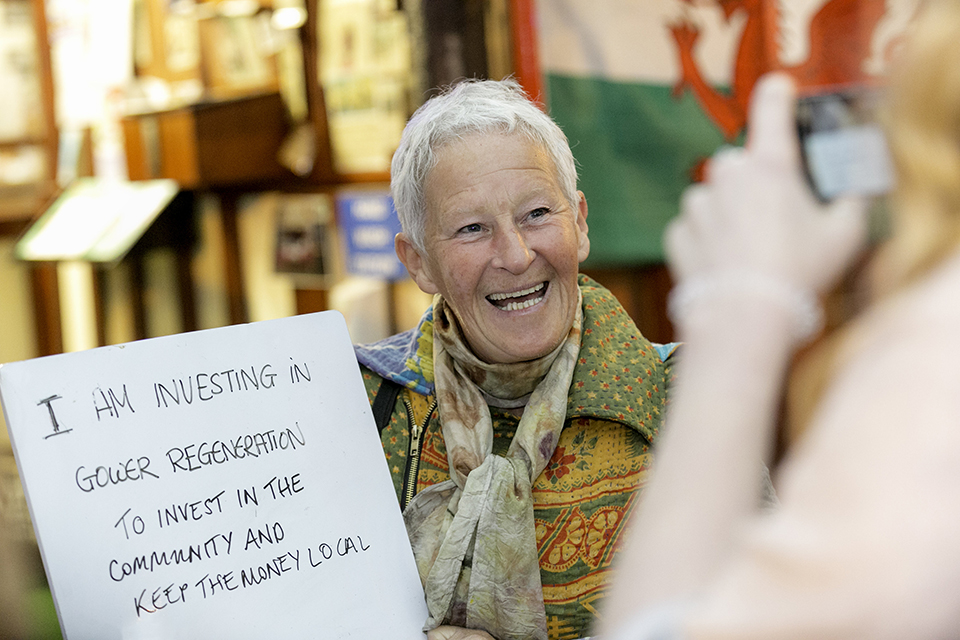 I AM INVESTING IN
GOWER REGENERATION
TO INVEST IN THE
COMMUNITY AND
KEEP THE MONEY LOCAL